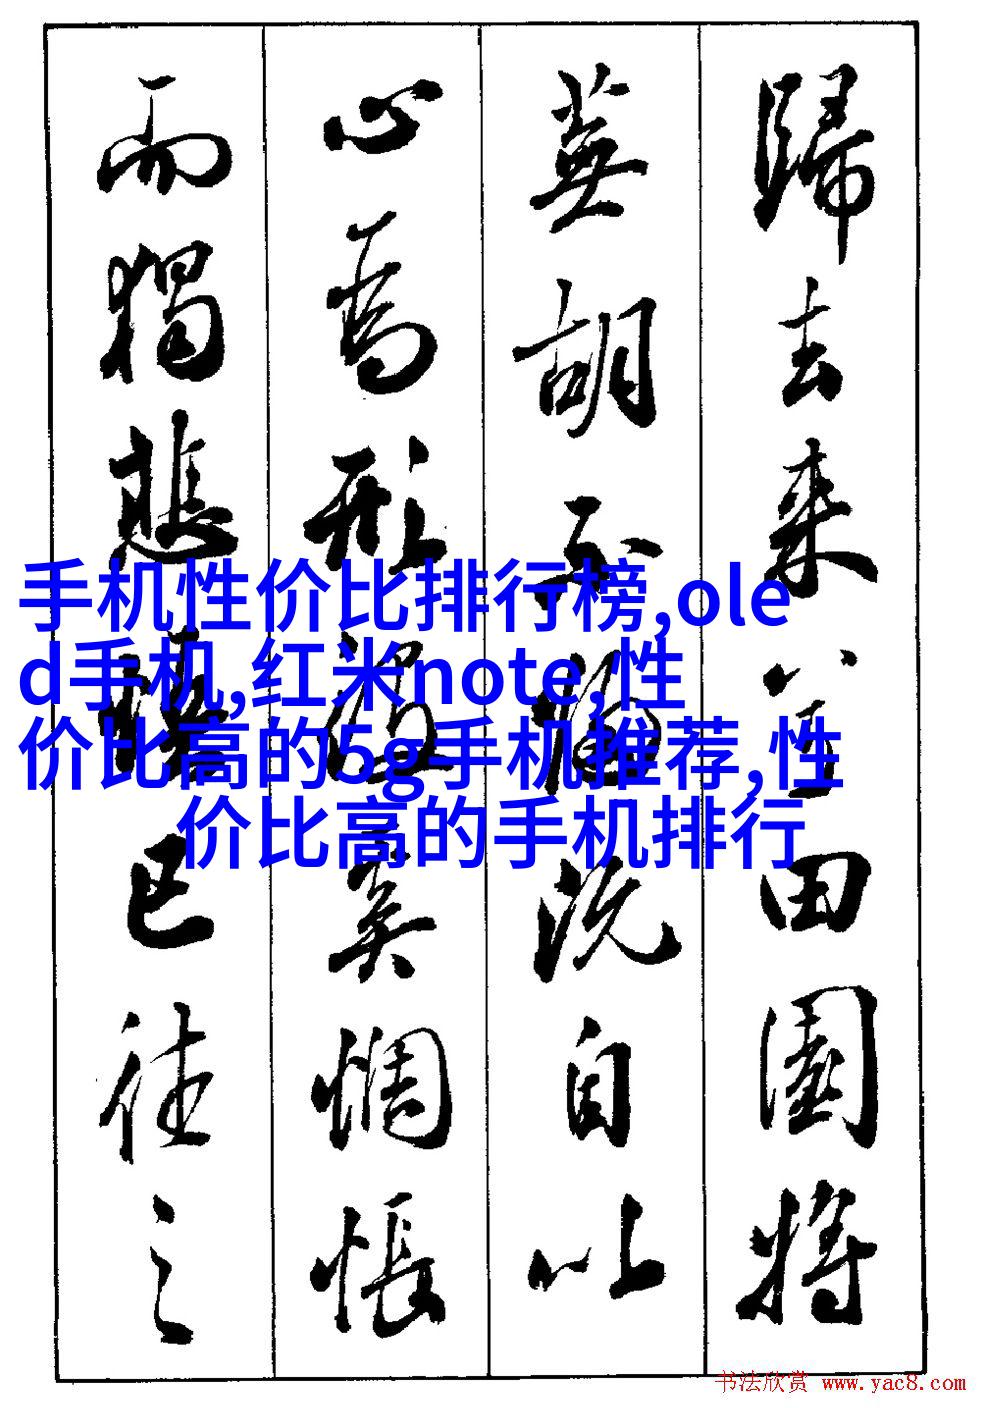 歸去来兮田園將
蕪胡不歸既自以
心為形役奚惆悵
而獨悲悟已往之
手机性价比排行榜,ole
d手机,红米note,性
价比高的5g手机推荐,性
价比高的手机排行
书法欣赏 www.yac8.com